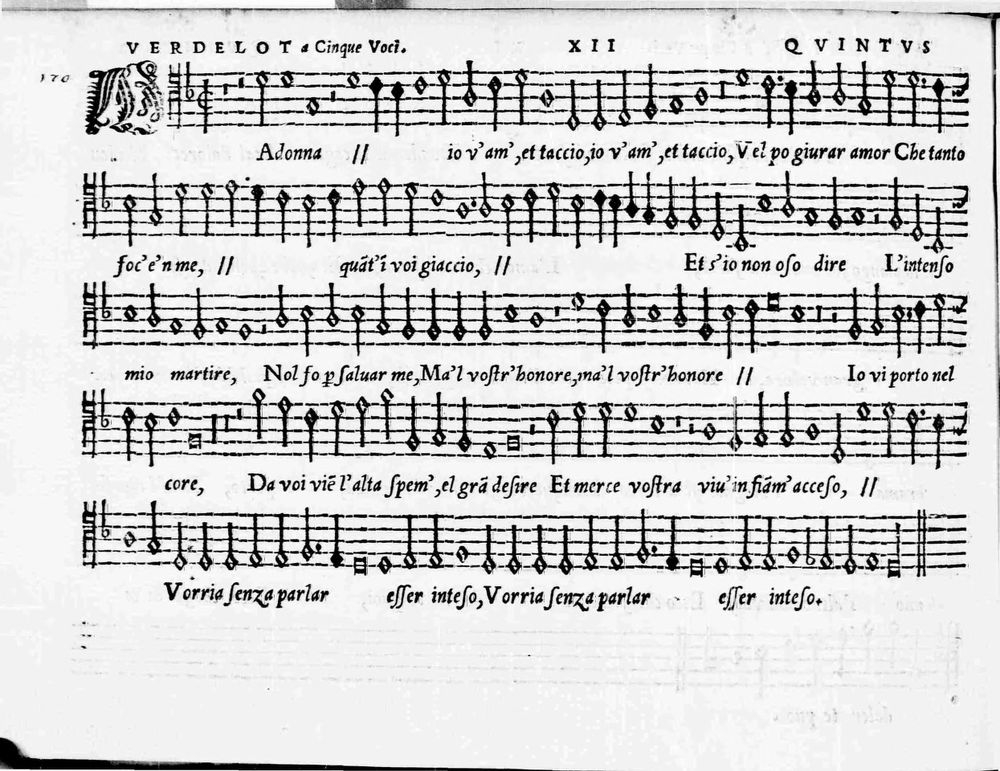 VERDELOT a Cinque Voci. XII QVINTVS
170
MAdonna // io v'am', et taccio, io v'am', et taccio, V el po giurar amor Che tanto
foc' e'n me, // quāt'ī voi giaccio, // Et s'io non oso dire L'intenso
mio martire, Nol fo ꝑ saluar me, Ma'l vostr'honore, ma'l vostr'honore // Io vi porto nel
core, Da voi viē l'alta spem', el grā desire Et merce vostra viu' in fiām' acceso, //
Vorria senza parlar esser inteso, Vorria senza parlar esser inteso.